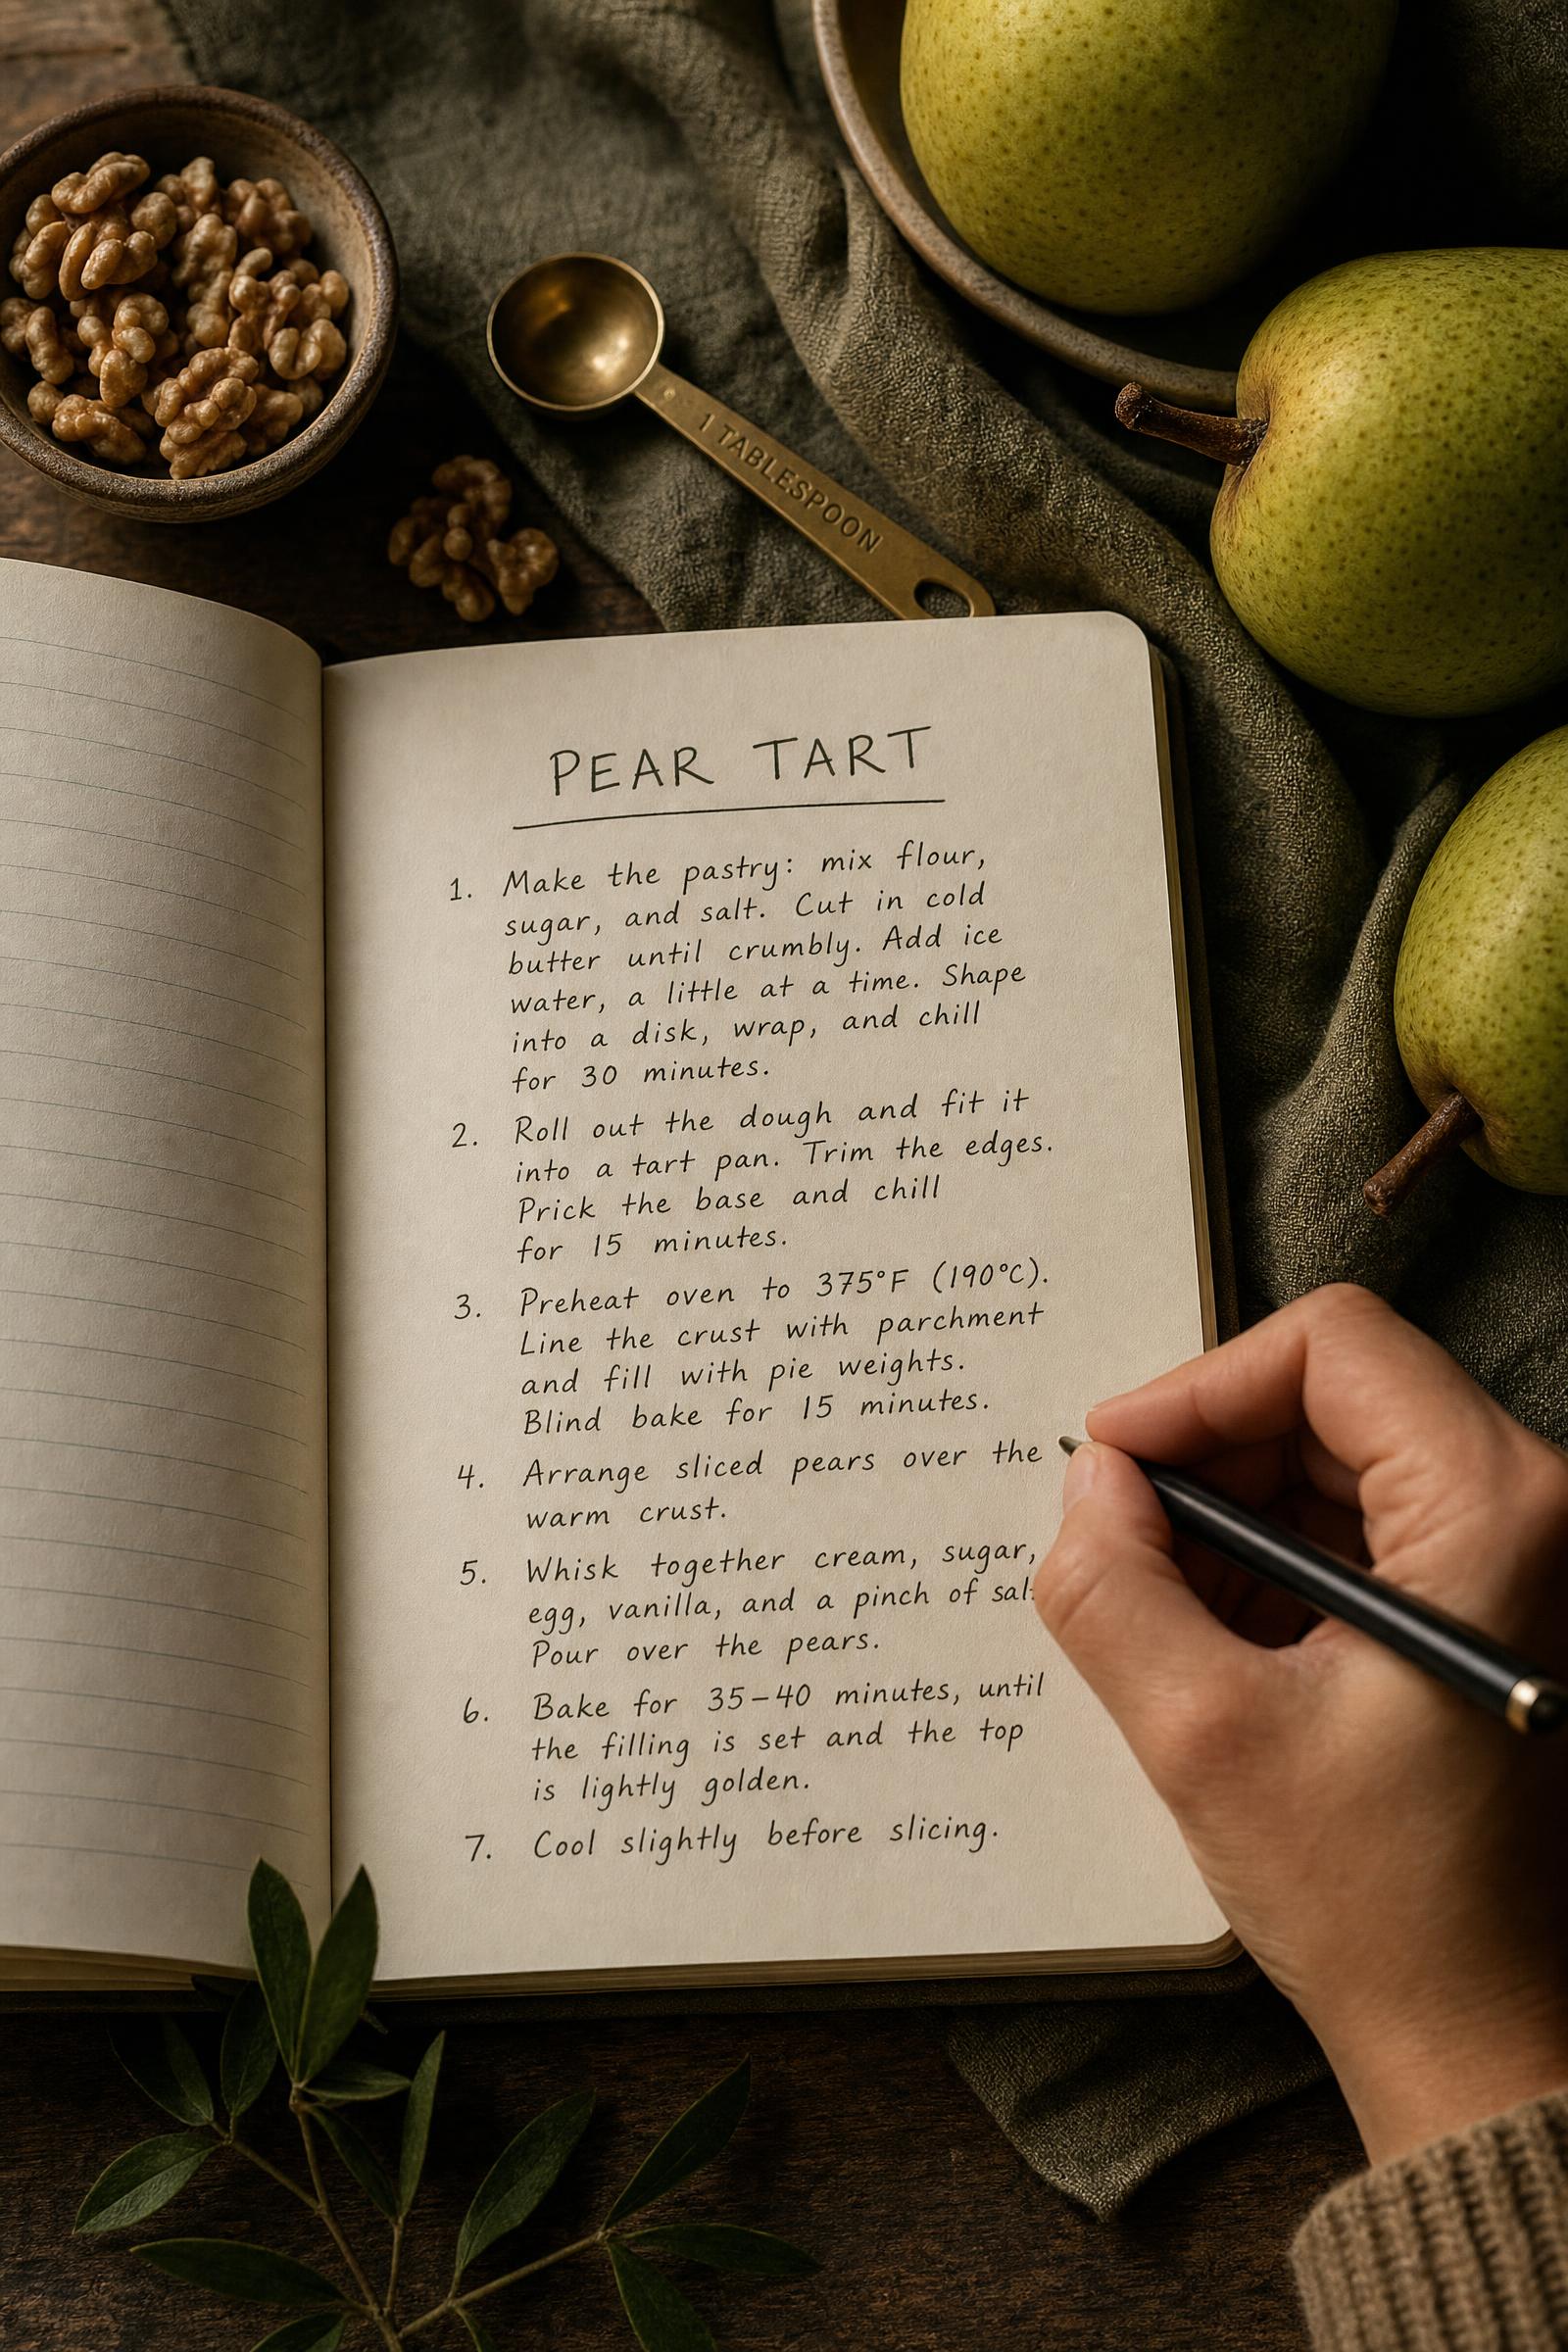 1 TABLESPOON
PEAR TART
1. Make the pastry: mix flour,
sugar, and salt. Cut in cold
butter until crumbly. Add ice
water, a little at a time. Shape
into a disk, wrap, and chill
for 30 minutes.
2. Roll out the dough and fit it
into a tart pan. Trim the edges.
Prick the base and chill
for 15 minutes.
3. Preheat oven to 375°F (190°C).
Line the crust with parchment
and fill with pie weights.
Blind bake for 15 minutes.
4. Arrange sliced pears over the
warm crust.
5. Whisk together cream, sugar,
egg, vanilla, and a pinch of salt
Pour over the pears.
6. Bake for 35–40 minutes, until
the filling is set and the top
is lightly golden.
7. Cool slightly before slicing.